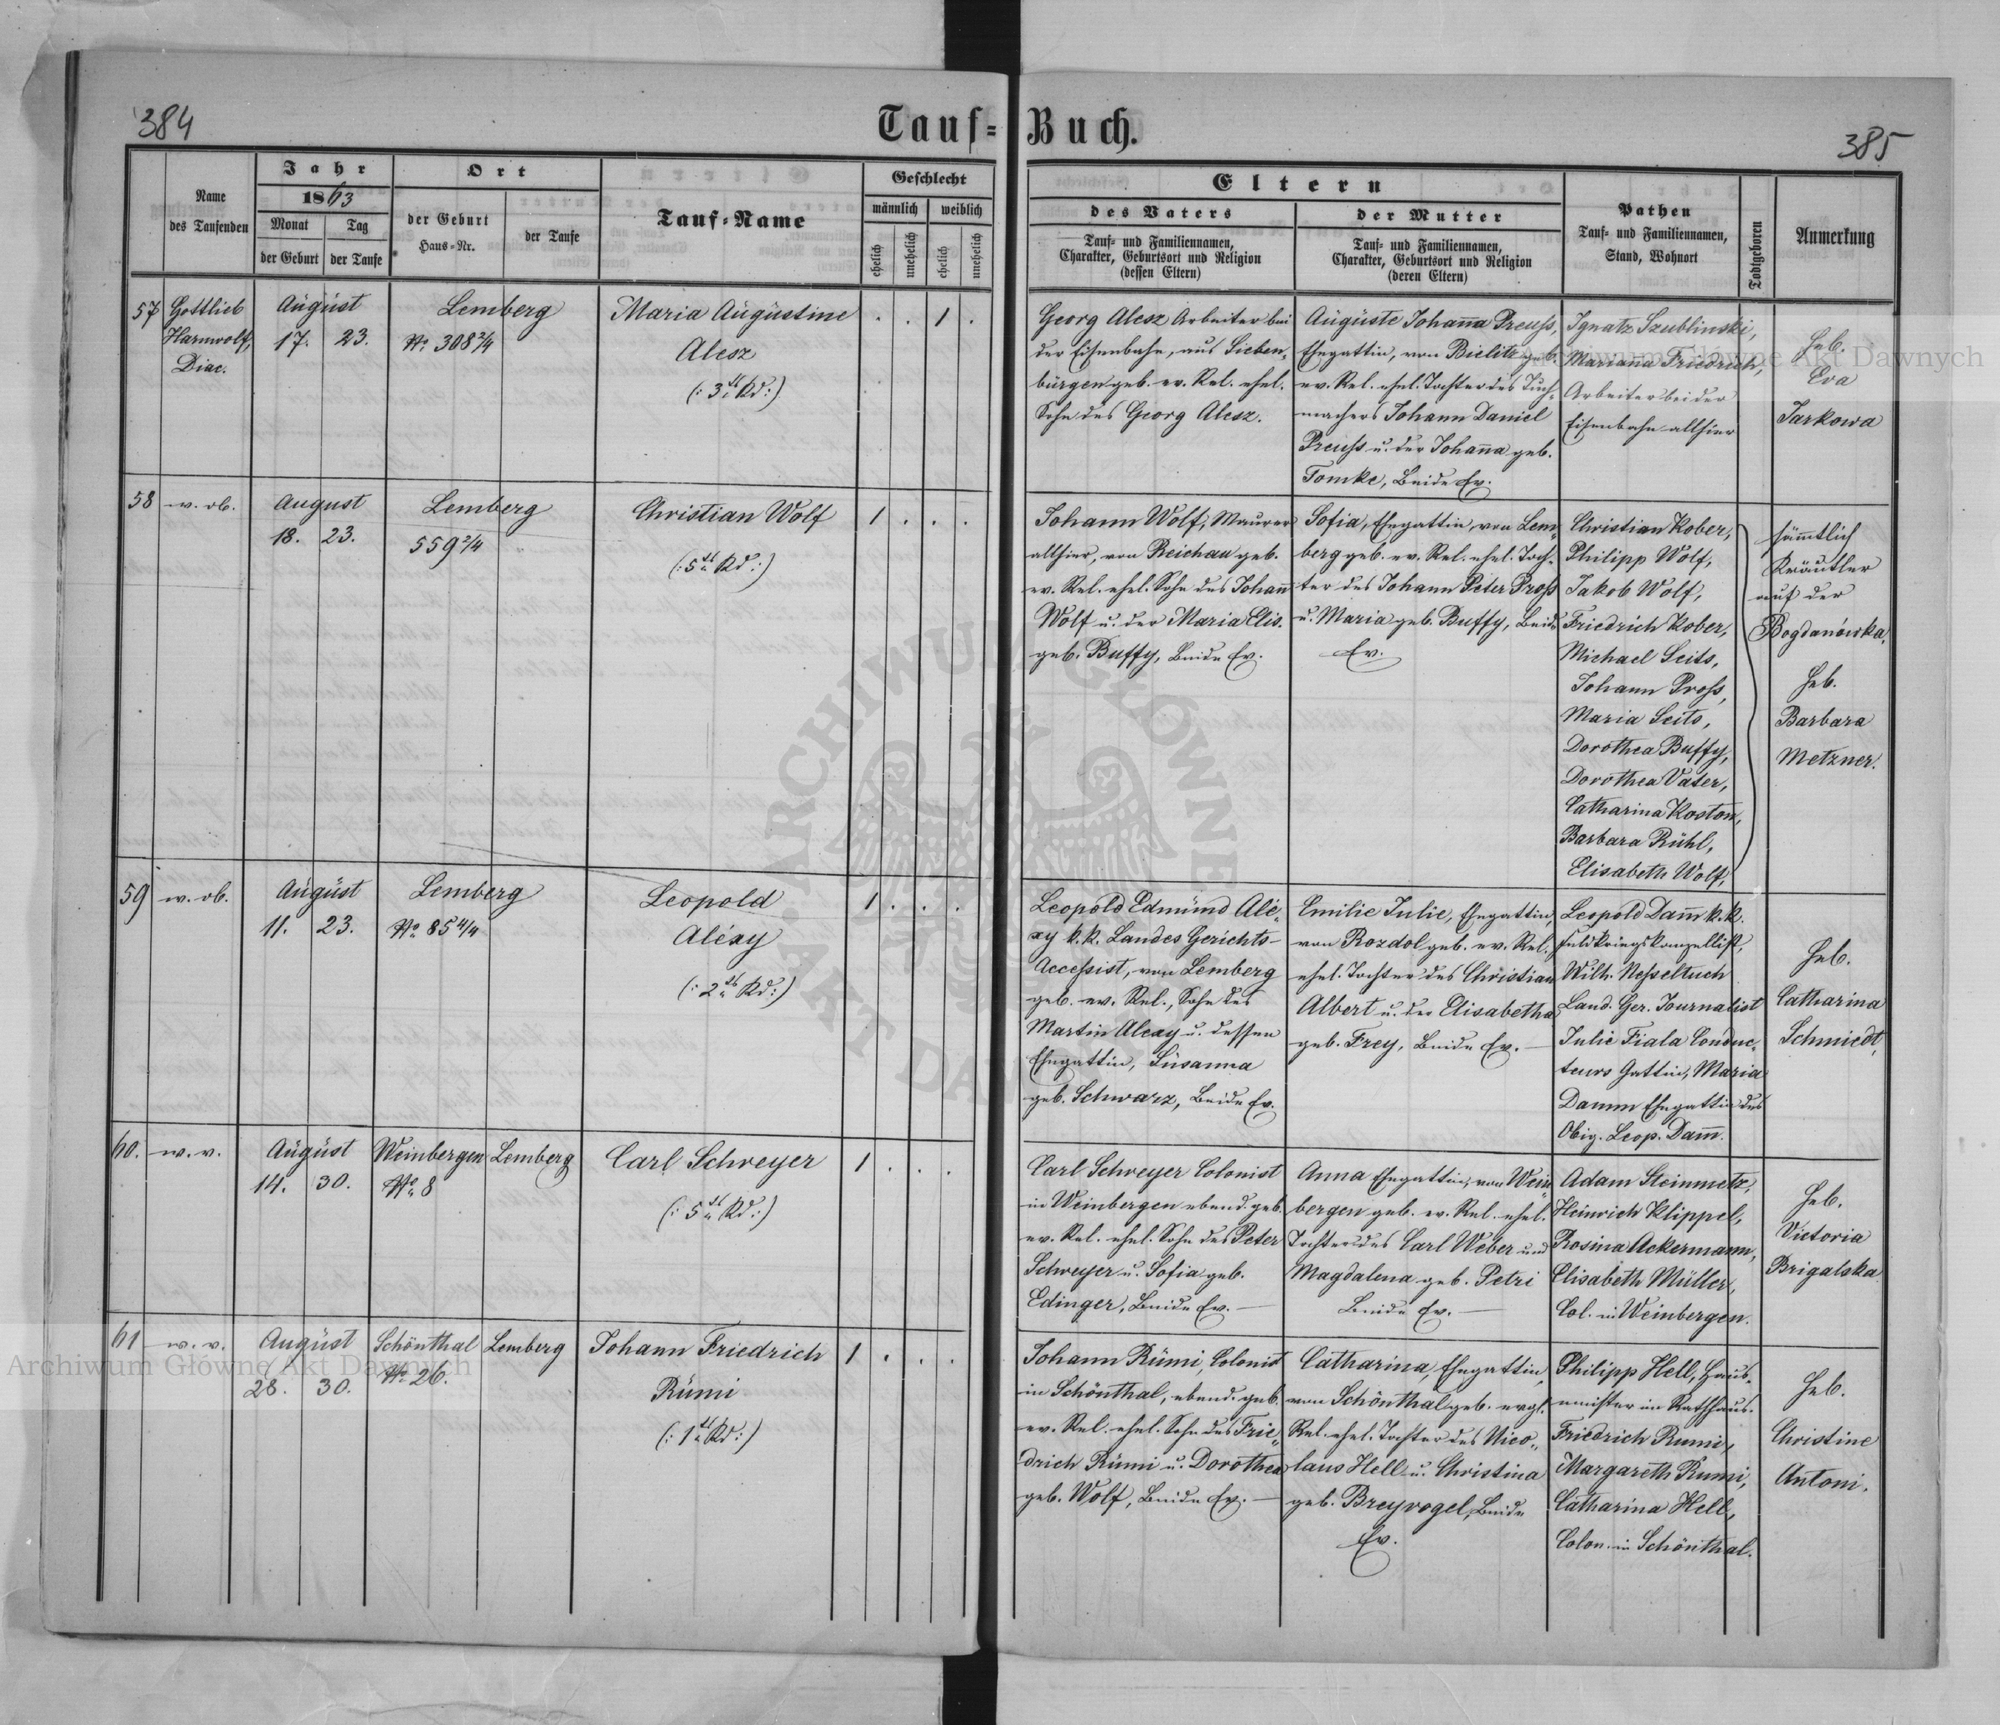 384
Tauf-Buch.
385
Name
des Taufenden
Jahr
1863
Monat
Tag
der Geburt
der Taufe
Ort
der Geburt
Haus-Nr.
der Taufe
Tauf-Name
Geschlecht
männlich
weiblich
ehelich
unehelich
ehelich
unehelich
Eltern
des Vaters
Tauf- und Familiennamen,
Charakter, Geburtsort und Religion
(dessen Eltern)
der Mutter
Tauf- und Familiennamen,
Charakter, Geburtsort und Religion
(deren Eltern)
Pathen
Tauf- und Familiennamen,
Stand, Wohnort
Todtgeboren
Anmerkung
57
Gottlieb
Harmwolf,
Diac.
August
17. 23.
Lemberg
No. 308 2/4
Maria Augustine
Alesz
(: 3tes Kd :)
. . 1 .
Georg Alesz Arbeiter bei
der Eisenbahn, aus Sieben-
bürgen geb. ev. Rel. ehel.
Sohn des Georg Alesz.
Auguste Johanna Preuss,
Ehegattin, von Bielitz geb.
ev. Rel. ehel. Tochter des Tuch-
machers Johann Daniel
Preuss u. der Johanna geb.
Tomke, Beide Ev.
Ignatz Szublinski,
Mariana Friedrich,
Arbeiter bei der
Eisenbahn allhier
Heb.
Eva
Jarkowa
58
w. ob.
August
18. 23.
Lemberg
559 2/4
Christian Wolf
(: 5tes Kd :)
1 . . .
Johann Wolf, Maurer
allhier, von Reichau geb.
ev. Rel. ehel. Sohn des Johann
Wolf u. der Maria Elis.
geb. Buffy, Beide Ev.
Sofia, Ehegattin, von Lem-
berg geb. ev. Rel. ehel. Toch-
ter des Johann Peter Pross
u. Maria geb. Buffy, Beide
Ev.
Christian Kober,
Philipp Wolf,
Jakob Wolf,
Friedrich Kober,
Michael Seits,
Johann Pross,
Maria Seits,
Dorothea Buffy,
Dorothea Vater,
Catharina Koston,
Barbara Rühl,
Elisabeth Wolf,
sämmtlich
Kräutler
auf der
Bogdanówka.
Heb.
Barbara
Metzner.
59
w. ob.
August
11. 23.
Lemberg
No. 85 4/4
Leopold
Aléxy
(: 2tes Kd :)
1 . . .
Leopold Edmund Alé-
xy k. k. Landes Gerichts-
Accessist, von Lemberg
geb. ev. Rel., Sohn des
Martin Alexy u. dessen
Ehegattin, Susanna
geb. Schwarz, Beide Ev.
Emilie Julie, Ehegattin,
von Rozdol geb. ev. Rel.
ehel. Tochter des Christian
Albert u. der Elisabetha
geb. Frey, Beide Ev. —
Leopold Dam̄ k. k.
Feldkriegskanzellist,
Wilh. Nesseltuch
Land. Ger. Journalist
Julie Fiala Conduc-
teurs Gattin, Maria
Damm Ehegattin des
Obig. Leop. Dam̄.
Heb.
Catharina
Schmiedt,
60.
w. v.
August
14. 30.
Weinbergen
No. 8
Lemberg
Carl Schreyer
(: 5tes Kd :)
1 . . .
Carl Schreyer Colonist
in Weinbergen ebend. geb.
ev. Rel. ehel. Sohn des Peter
Schreyer u. Sofia geb.
Edinger, Beide Ev. —
Anna Ehegattin, von Wein-
bergen geb. ev. Rel. ehel.
Tochter des Carl Weber und
Magdalena geb. Petri
Beide Ev. —
Adam Steinmetz,
Heinrich Klippel,
Rosina Ackermann,
Elisabeth Müller,
Col. in Weinbergen.
Heb.
Victoria
Brigalska
61
w. v.
August
28. 30.
Schönthal
No. 26.
Lemberg
Johann Friedrich
Rümi
(: 1tes Kd :)
1 . . .
Johann Rümi, Colonist
in Schönthal, ebend. geb.
ev. Rel. ehel. Sohn des Frie-
drich Rümi u. Dorothea
geb. Wolf, Beide Ev. —
Catharina, Ehegattin,
von Schönthal geb. evgl.
Rel. ehel. Tochter des Nico-
laus Hell u. Christina
geb. Breyvogel, Beide
Ev.
Philipp Hell, Haus-
meister im Rathhaus.
Friedrich Rumi,
Margareth Rumi,
Catharina Hell,
Colon. in Schönthal.
Heb.
Christine
Antoni.
Archiwum Główne Akt Dawnych
Archiwum Główne Akt Dawnych
ARCHIWUM GŁÓWNE AKT DAWNYCH